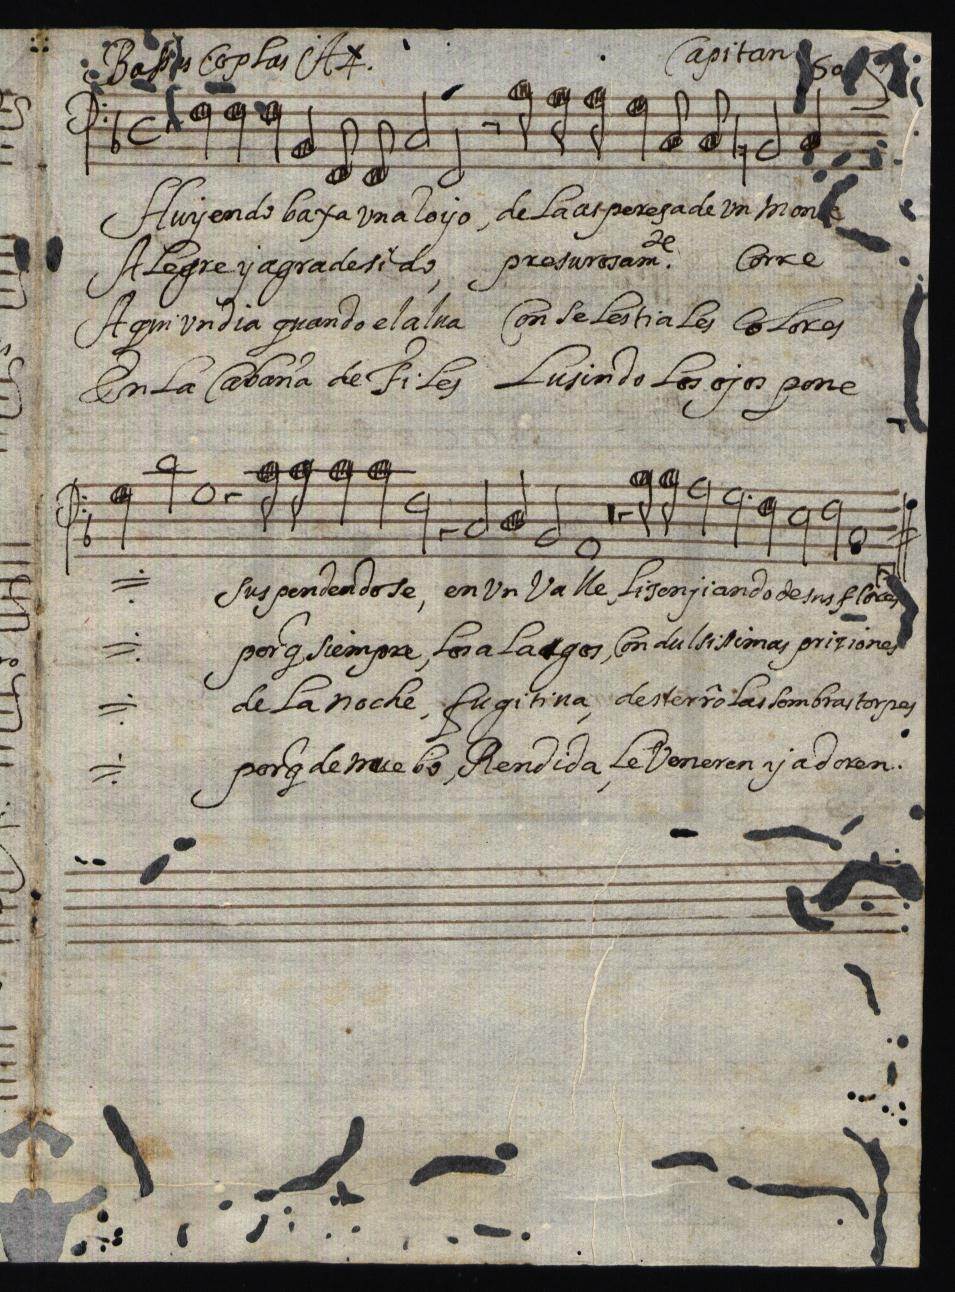 Baxo Coplas A 4. Capitan
Huyendo baxa vn aRoyo, de la aspereça de vn Monte
Alegre y agradesido, presurosam.de Corre
Aqui vn dia quando el alua Con Selestiales Colores
En La Cabaña de Files Lusindo los ojos pone
suspendendose, en vn Valle Lisonjiando de sus flores
porq siempre, los alagos, Con dulsissimas priziones
de la noche, fugitiua, desterrô las sombras torpes
porq de nuebo, Rendida, le Veneren y adoren.